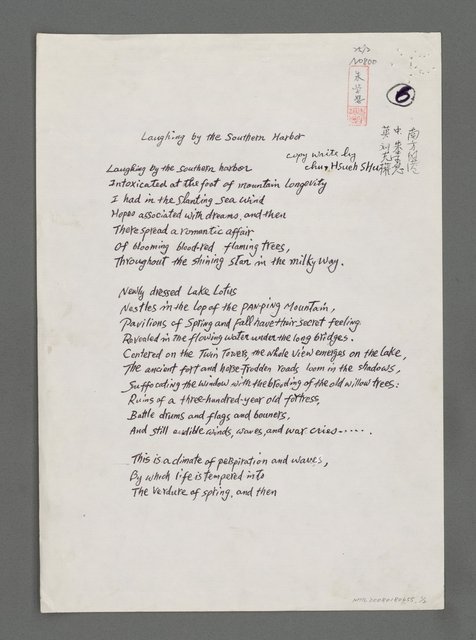 No 800
6
南方港
Laughing by the Southern Harbor
copy write by
chu, Hsueh SHU
Laughing by the southern harbor
Intoxicated at the foot of mountain longevity
I had in the slanting sea wind
Hopes associated with dreams, and then
There spread a romantic affair
Of blooming blood-red flaming trees,
Throughout the shining star in the milky way.
Newly dressed Lake Lotus
Nestles in the lap of the PAN-PING Mountain,
Pavilions of Spring and Fall have their secret feeling
Revealed in the flowing water under the long bridges.
Centered on the Twin Towers, the whole view emerges on the lake,
The ancient fort and horse-trodden roads loom in the shadows,
Suffocating the window with the brooding of the old willow trees:
Ruins of a three-hundred-year old fortress,
Battle drums and flags and banners,
And still audible winds, waves, and war cries......
This is a climate of perspiration and waves,
By which life is tempered into
The verdure of spring, and then